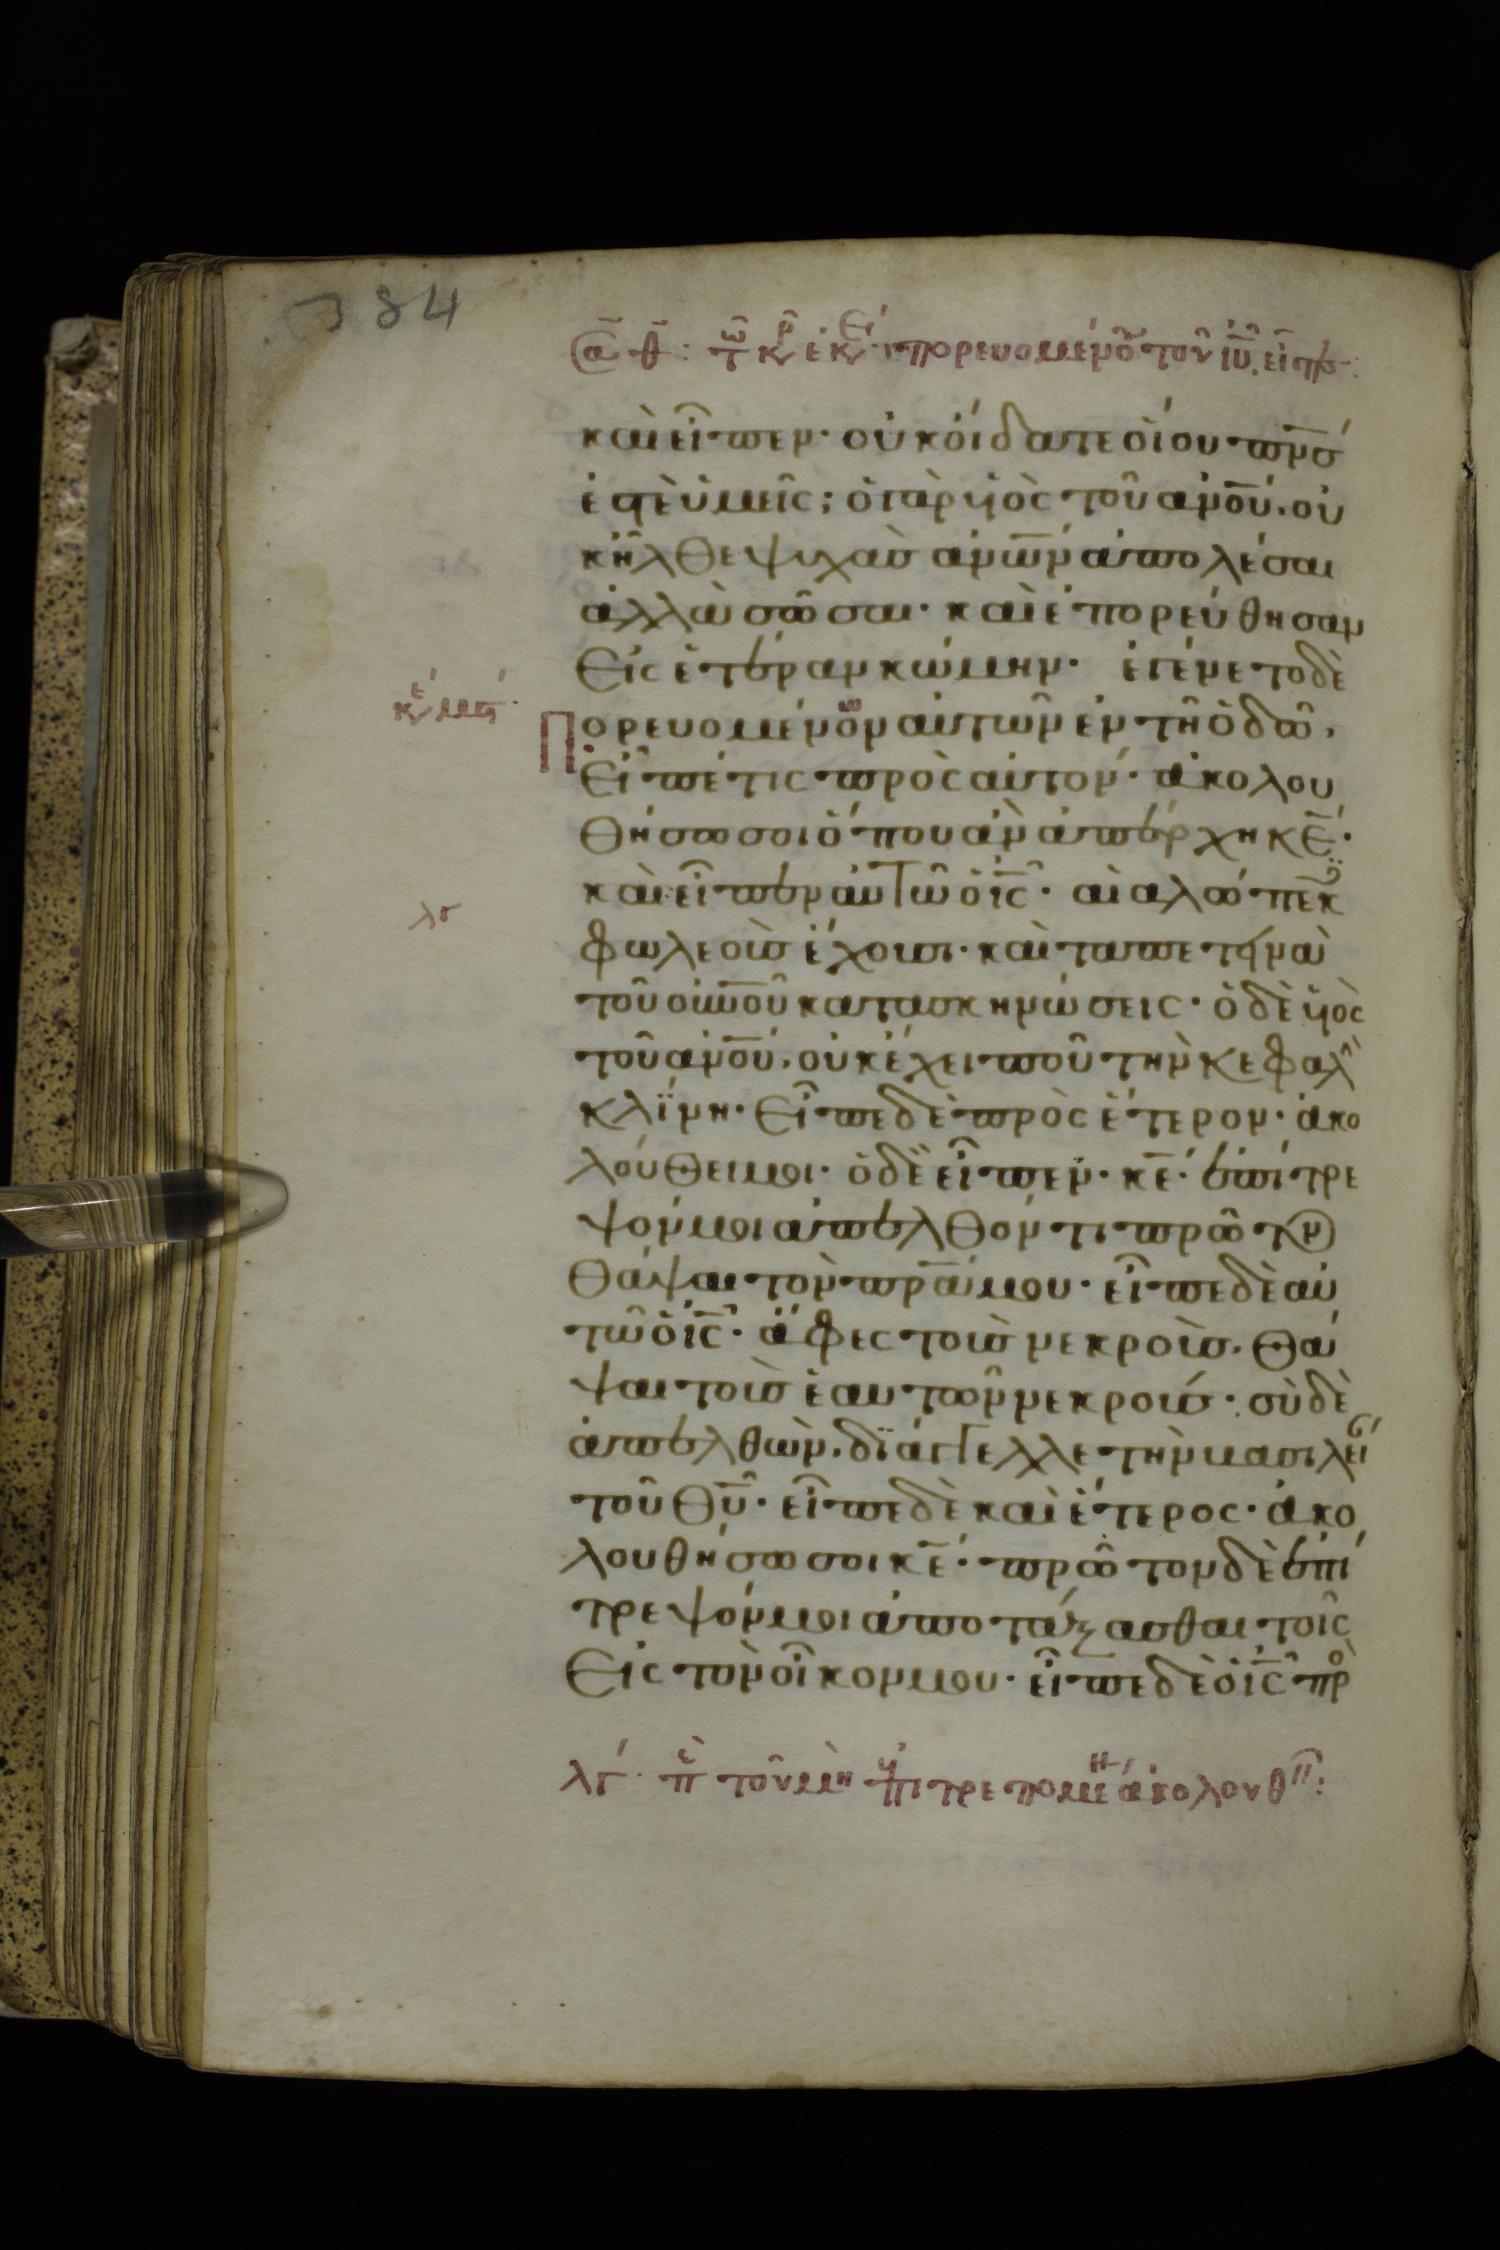 384
καὶ εἶπεν· οὐκ οἴδατε οἵου πν̅ς
ἐστὲ ὑμεῖς; ὁ γὰρ υἱὸς τοῦ ἀν̅ου, οὐ
κ ἦλθε ψυχὰς ἀν̅ων ἀπολέσαι
ἀλλὰ σῶσαι· καὶ ἐπορεύθησαν
εἰς ἑτέραν κώμην· ἐγένετο δὲ
Πορευομένον αὐτῶν ἐν τῇ ὁδῶ,
εἶπέ τις πρὸς αὐτόν· ἀκολου
θήσω σοι ὅπου ἂν ἀπέρχη κ̅ε·
καὶ εἶπεν αὐτῶ ὁ ι̅ς· αἱ ἀλώπεκ
φωλεοὺς ἔχουσι· καὶ τὰ πετηνὰ
τοῦ οὐνοῦ κατασκηνώσεις· ὁ δὲ υἱὸς
τοῦ ἀν̅ου, οὐκ ἔχει ποῦ τὴν κεφαλ
κλίνη· εἶπε δὲ πρὸς ἕτερον· ἀκο
λούθει μοι· ὁ δὲ εἶπεν· κ̅ε· ἐπίτρε
ψόν μοι ἀπελθόντι πρῶτον
θάψαι τὸν πρ̅α μου· εἶπε δὲ αὐ
τῶ ὁ ι̅ς· ἄφες τοὺς νεκροὺς, θά
ψαι τοὺς ἑαυτῶν νεκρούς· σὺ δὲ
ἀπελθὼν, διάγγελλε τὴν βασιλεί
τοῦ θ̅υ· εἶπε δὲ καὶ ἕτερος· ἀκο
λουθήσω σοι κ̅ε· πρῶτον δὲ ἐπί
τρεψόν μοι ἀποτάξασθαι τοῖς
εἰς τὸν οἶκον μου· εἶπε δὲ ὁ ι̅ς πρ
λγ· π τοῦ μὴ ἐπιτρεπομέ ἀκολουθ: